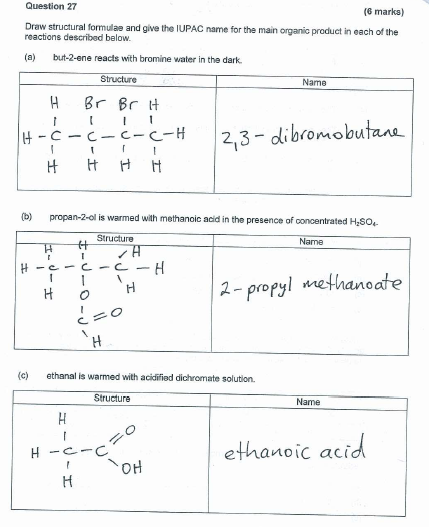 Question 27
(6 marks)
Draw structural formulae and give the IUPAC name for the main organic product in each of the
reactions described below.
(a) but-2-ene reacts with bromine water in the dark.
Structure Name
H Br Br H
H - C - C - C - C - H
H H H H
2,3 - dibromobutane
(b) propan-2-ol is warmed with methanoic acid in the presence of concentrated H₂SO₄.
Structure Name
H H H
H - C - C - C - H
H O H
C = O
H
2 - propyl methanoate
(c) ethanal is warmed with acidified dichromate solution.
Structure Name
H
O
H - C - C
OH
H
ethanoic acid